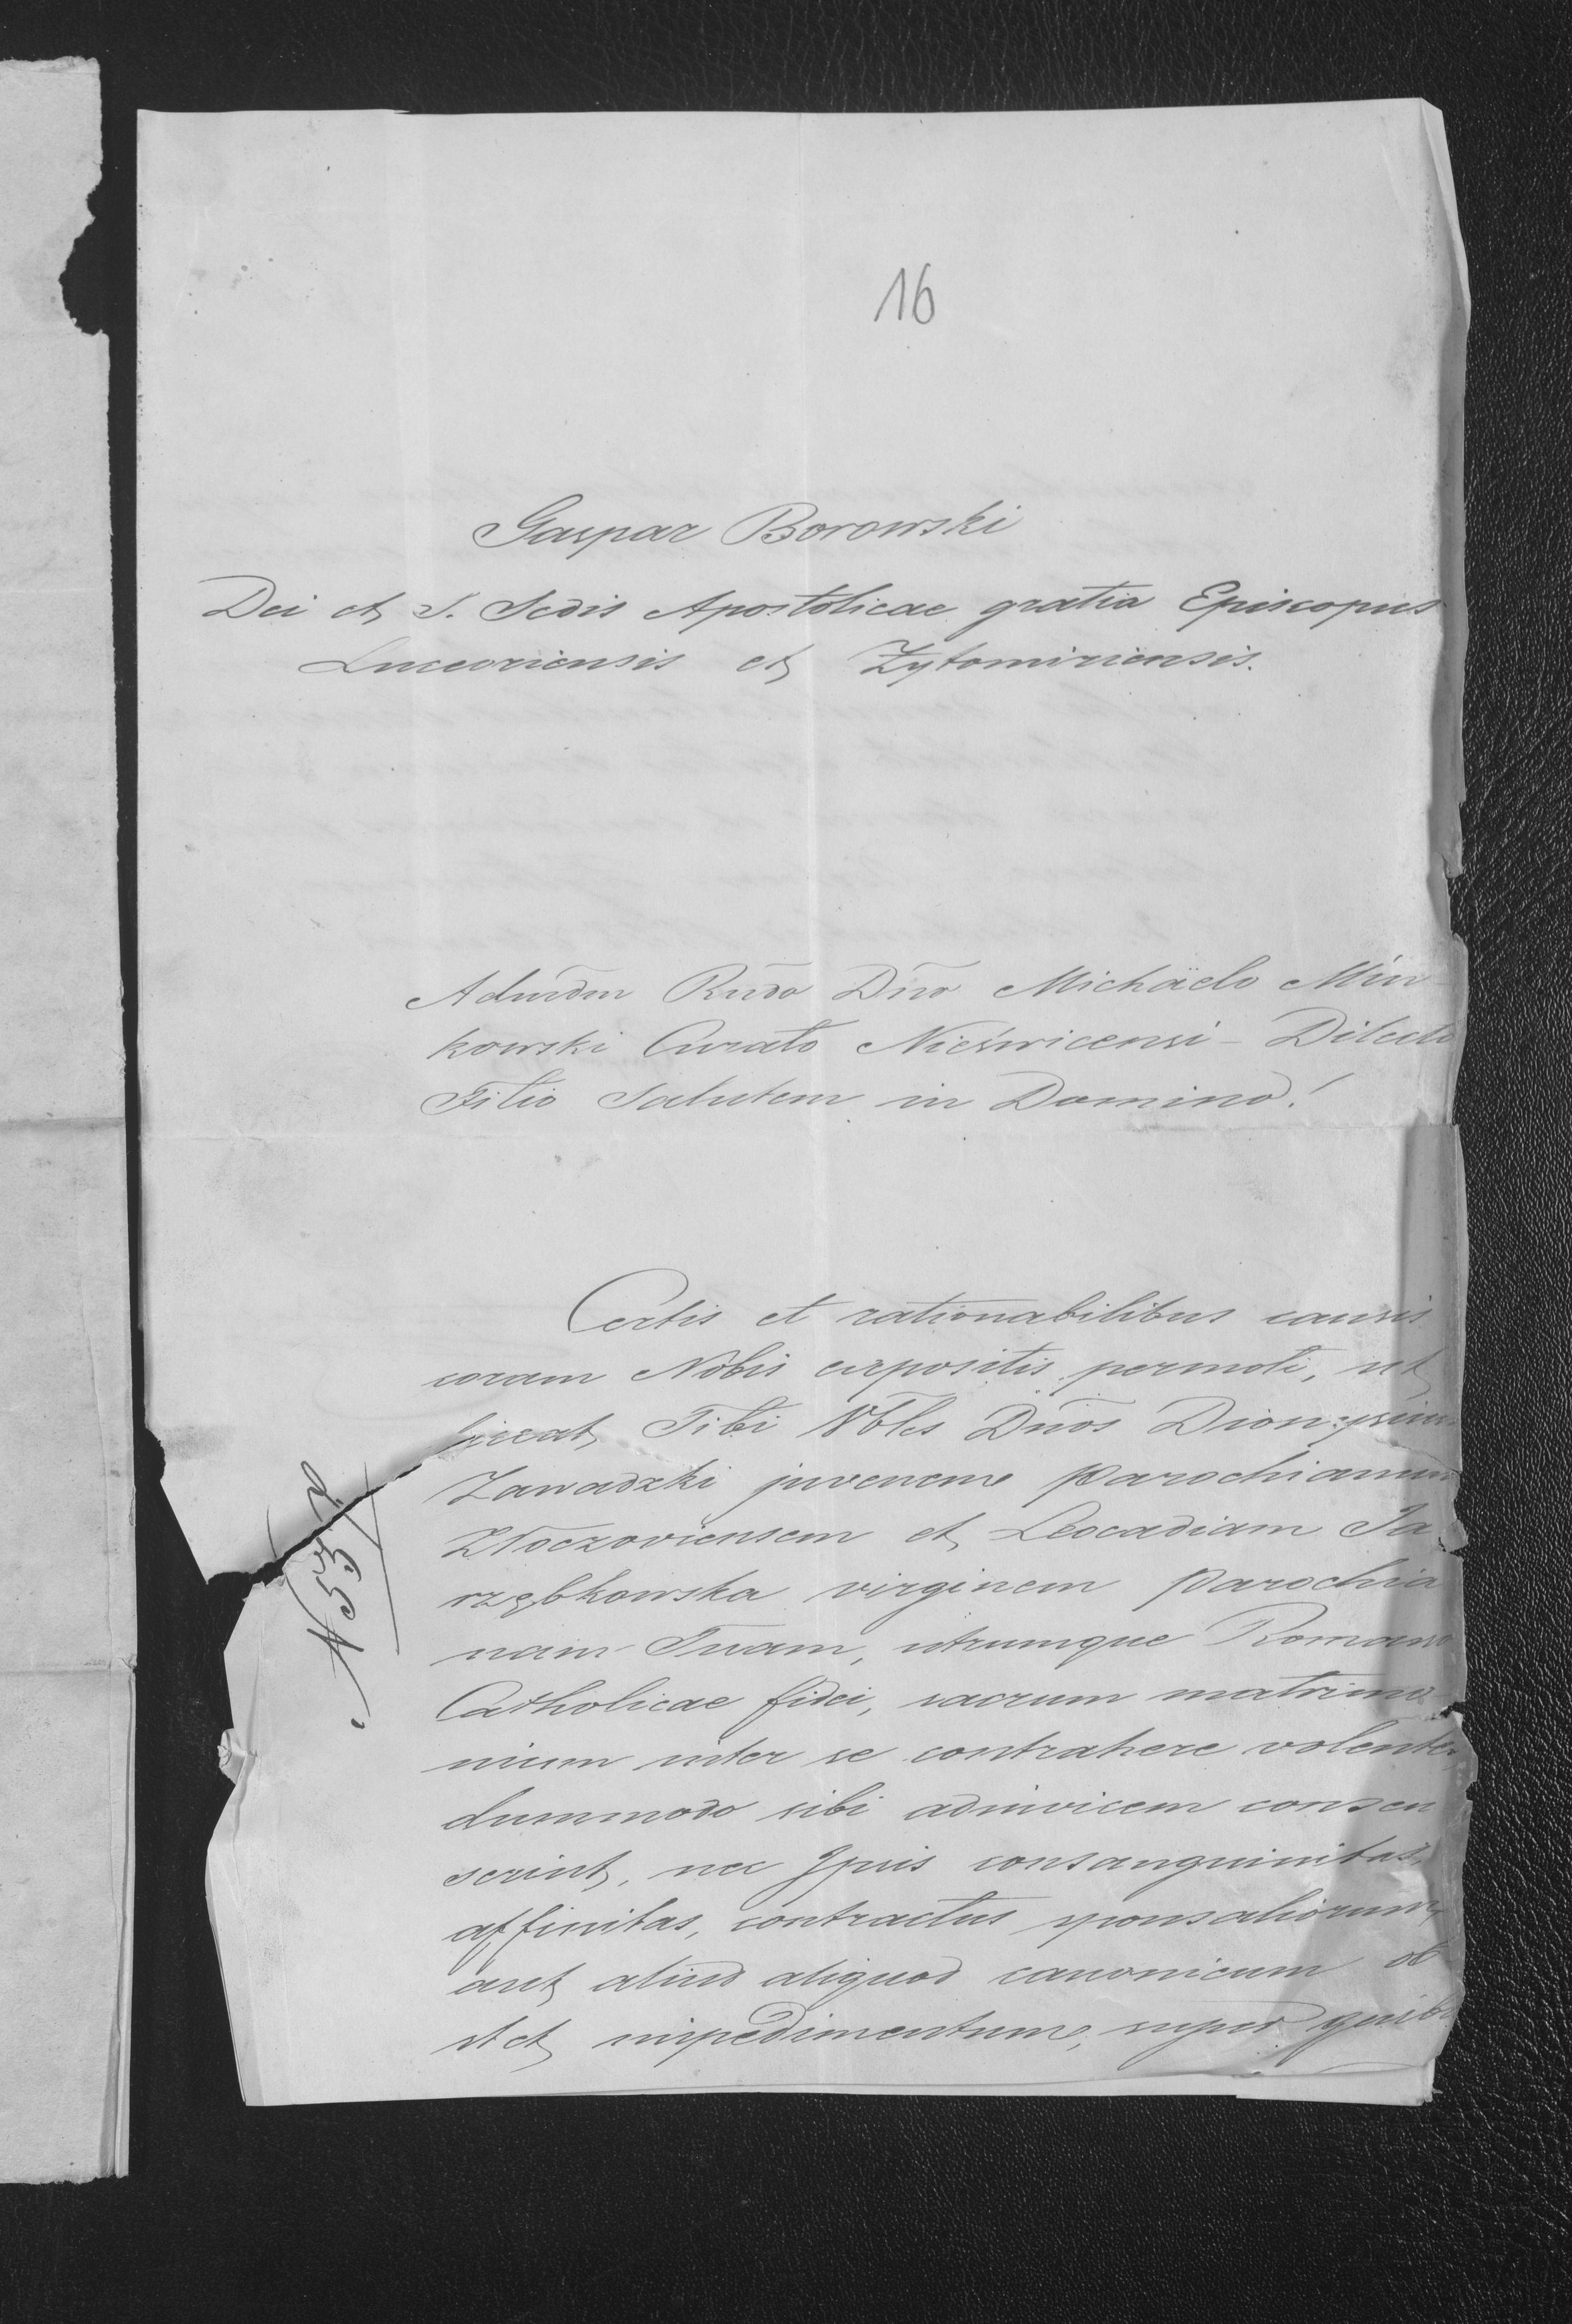 16
Gaspar Borowski
Dei et S. Sedis Apostolicae gratia Episcopus
Luceoriensis et Zytomiriensis.
Admdm Rndo Dno Michaëlo Min-
kowski Curato Nieświcensi - Dilecto
Filio Salutem in Domino!
Certis et rationabilibus causis
coram Nobis expositis permoti, ut
liceat Tibi Nbles Dños Dionysium
Zawadzki juvenem parochianum
Złoczoviensem et Leocadiam Ja
rzębkowska virginem parochia
nam Tuam, utrumque Romano
Catholicae fidei, sacrum matrimo
nium inter se contrahere volentes,
dummodo sibi adinvicem consen
serint, nec Ipsis consanguinitas,
affinitas, contractus sponsaliorum,
aut aliud aliquod canonicum ob
stet impedimentum, super quib